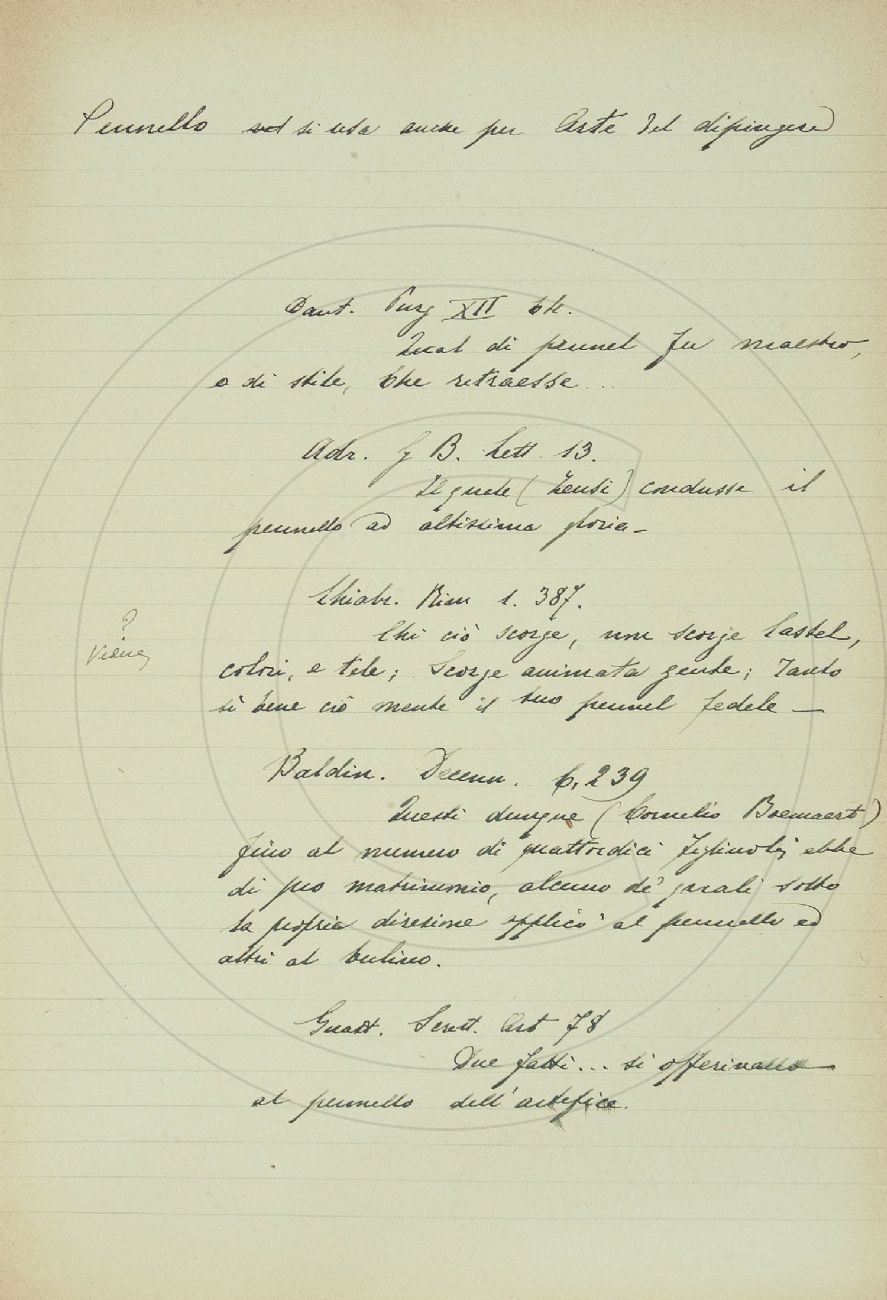 Pennello si usa anche per Arte del dipingere
Dant. Purg XII 64.
Qual di pennel fu maestro,
o di stile, Che ritraesse ...
Adr. G B. Lett. 13.
Il quale (Zeusi) condusse il
pennello ad altissima gloria –
Chiabr. Rim 1. 387.
Chi ciò scorge, non scorge Castel,
colori, e tele; Scorge animata gente; Tanto
sì bene ciò mente il tuo pennel fedele —
?
Baldin. Decenn. 6, 239
Questi dunque (Cornelio Bloemaert)
fino al numero di quattordici figliuoli ebbe
di suo matrimonio, alcuno de' quali sotto
la propria direzione applicò al pennello ed
altri al bulino.
Guast. Scritt. Art 78
Due fatti... si offerivano
al pennello dell'artefice.